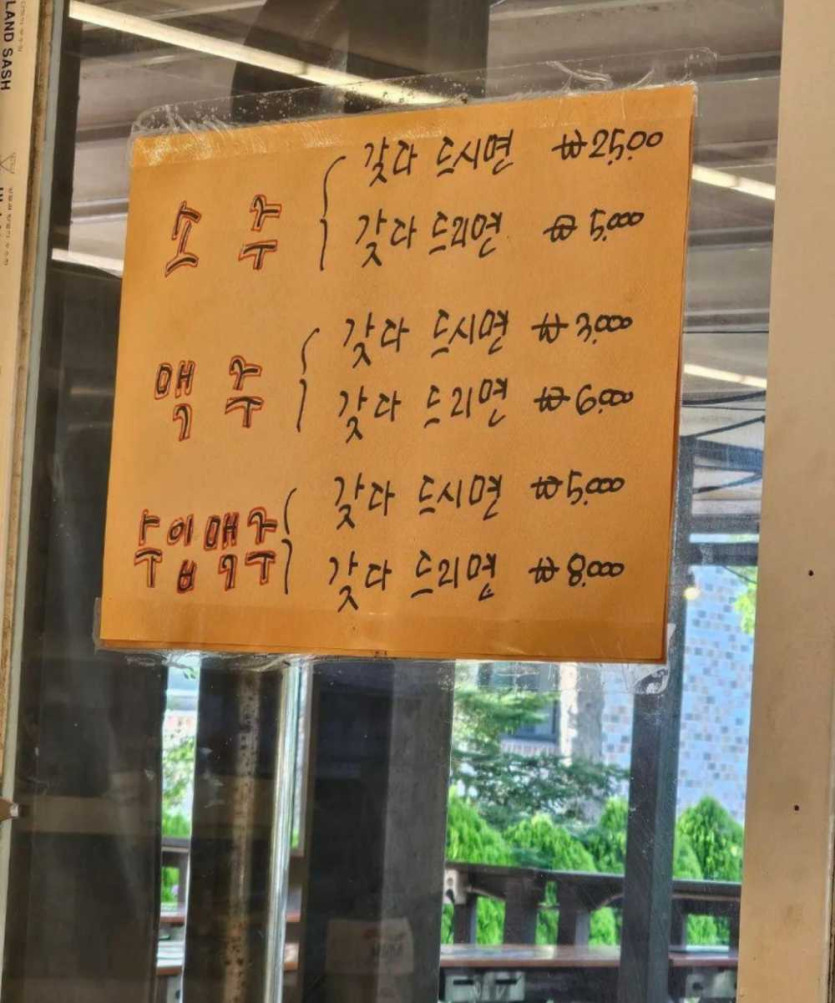 LAND SASH
소주 갖다 드시면 ₩25,00
갖다 드리면 ₩5,000
맥주 갖다 드시면 ₩3,000
갖다 드리면 ₩6,000
수입맥주 갖다 드시면 ₩5,000
갖다 드리면 ₩8,000